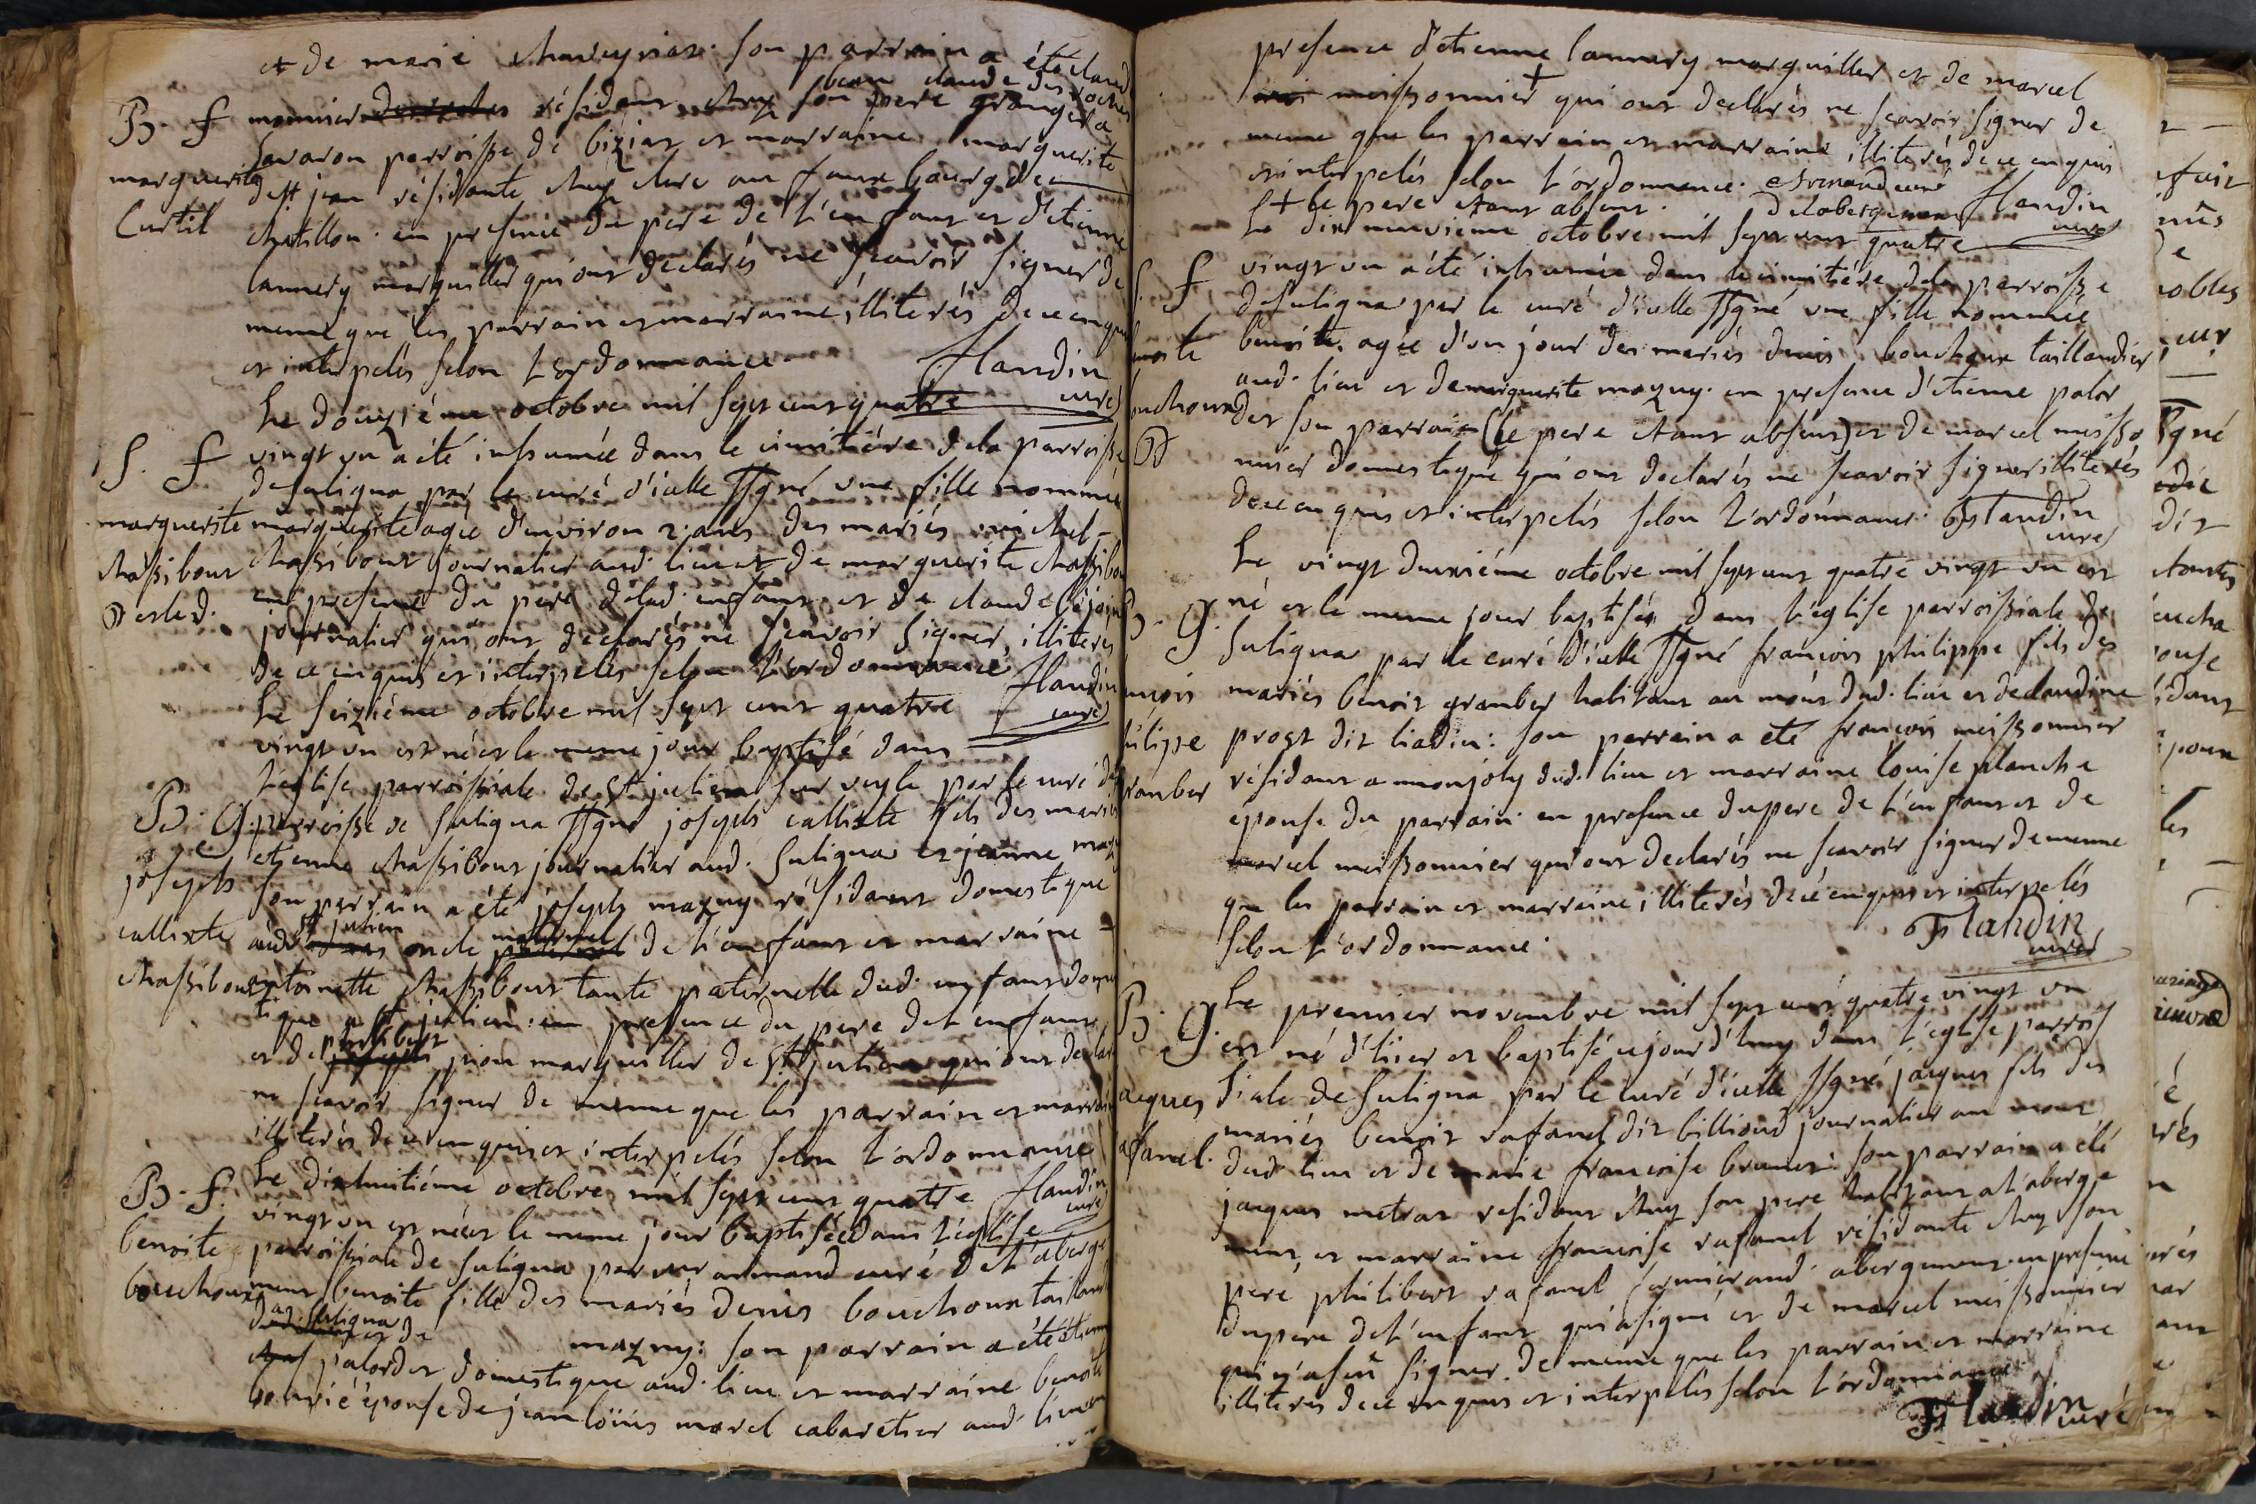 et de marie chareyriar. son parrain a été claud
beau claude des roches
B. f monnier résidant chez son pere granger a
savaron parroisse de biziat et marraine marguerite
marguerite de st jean résidante chez clerc au faux bourg de
Curtil chatillon. en presence du pere de l'enfant et d'etienne
lannery marguiller qui ont declarés ne scavoir signer de
meme que les parrain et marraine, illiterés de ce enquis
et interpelés selon l'ordonnance Flandin
curé
Le douzième octobre mil sept cent quatre
S. f vingt un a été inhumée dans le cimitière de la parroisse
de suligna par le curé d'icelle ssgné une fille nommée
marguerite marguerite agée d'environ 2 ans des mariés michel
chassibout chassibout journalier aud. lieu et de marguerite chassibout
en presence du pere de lad. enfant et de claude
journalier qui ont declarés ne scavoir signer, illiterés
de ce enquis et interpelés selon l'ordonnance Flandin
curé
Le seizième octobre mil sept cent quatre
vingt un est né et le meme jour baptisé dans
l'eglise parroissiale de St julien sur veyle par le curé de
B. G. parroisse de suligna ssgné joseph callixte fils des mariés
etienne chassibout journalier aud. suligna et jeanne mazuy
joseph son parrain a été joseph mazuy résidant domestique
callixte aud. st julien oncle maternel de l'enfant et marraine
chassibout antoinette chassibout tante paternelle dud. enfant domes
tique a st julien: en presence du pere de l'enfant
et de philibert pion marguiller de St. julien qui ont declaré
ne scavoir signer de meme que les parrain et marraine
illiterés de ce enquis et interpelés selon l'ordonnance
Flandin
curé
B. f. Le dixhuitième octobre mil sept cent quatre
vingt un est née et le meme jour baptisée dans l'eglise
benoite parroissiale de suligna par mr armand curé de l'aberge
bouchoux ment benoite fille des mariés denis bouchoux taillandier
dud. suligna et de mazuy: son parrain a été etienne
palordet domestique aud. lieu et marraine benoite
épouse de jean loüis morel cabaretier aud. lieu en
presence d'etienne lannery marguiller et de marcel
meissonnier + qui ont declarés ne scavoir signer de
meme que les parrain et marraine illiterés de ce enquis
et interpelés selon l'ordonnance. Armand curé
de labergement Flandin
curé
+ le pere etant absent.
Le dix neuvième octobre mil sept cent quatre
S. f vingt un a été inhumée dans le cimitière de la parroisse
de suligna par le curé d'icelle ssgné une fille nommée
benoite benoite, agée d'un jour des mariés denis bouchoux taillandier
bouchoux aud. lieu et de marguerite mazuy. en presence d'etienne palor
det son parrain (le pere etant absent) et de marcel meisso
nnier domestique qui ont declarés ne scavoir signer illiterés
de ce enquis et interpelés selon l'ordonnance. Flandin
curé
Le vingt deuxième octobre mil sept cent quatre vingt un est
B. G. né et le meme jour baptisé dans l'eglise parroissiale de
suligna par le curé d'icelle ssgné françois philippe fils des
françois mariés benoit gramber habitant au mont dud. lieu et de claudine
philippe prost dit liadin: son parrain a été françois meissonnier
gramber résidant a monjoly dud. lieu et marraine louise planche
épouse du parrain. en presence du pere de l'enfant et de
marcel meissonnier qui ont declarés ne scavoir signer de meme
que les parrain et marraine, illiterés de ce enquis et interpelés
selon l'ordonnance. Flandin
curé
Le premier novembre mil sept cent quatre vingt un
B. G. est né d'hier et baptisé cejourd'huy dans l'eglise parrois
jacques siale de suligna par le curé d'icelle ssgné jacques fils des
mariés benoit rafanel dit billioud journalier au mont
rafanel. dud. lieu et de marie francoise brunet. son parrain a été
jacques metrat résidant chez son pere habitant a l'aberge
ment, et marraine francoise rafanel résidante chez son
pere philibert rafanel fermier aud. abergement. en presence
du pere de l'enfant qui a signé et de marcel meissonnier
qui n'a sçu signer de meme que les parrain et marraine
illiterés de ce enquis et interpelés selon l'ordonnance
Flandin curé